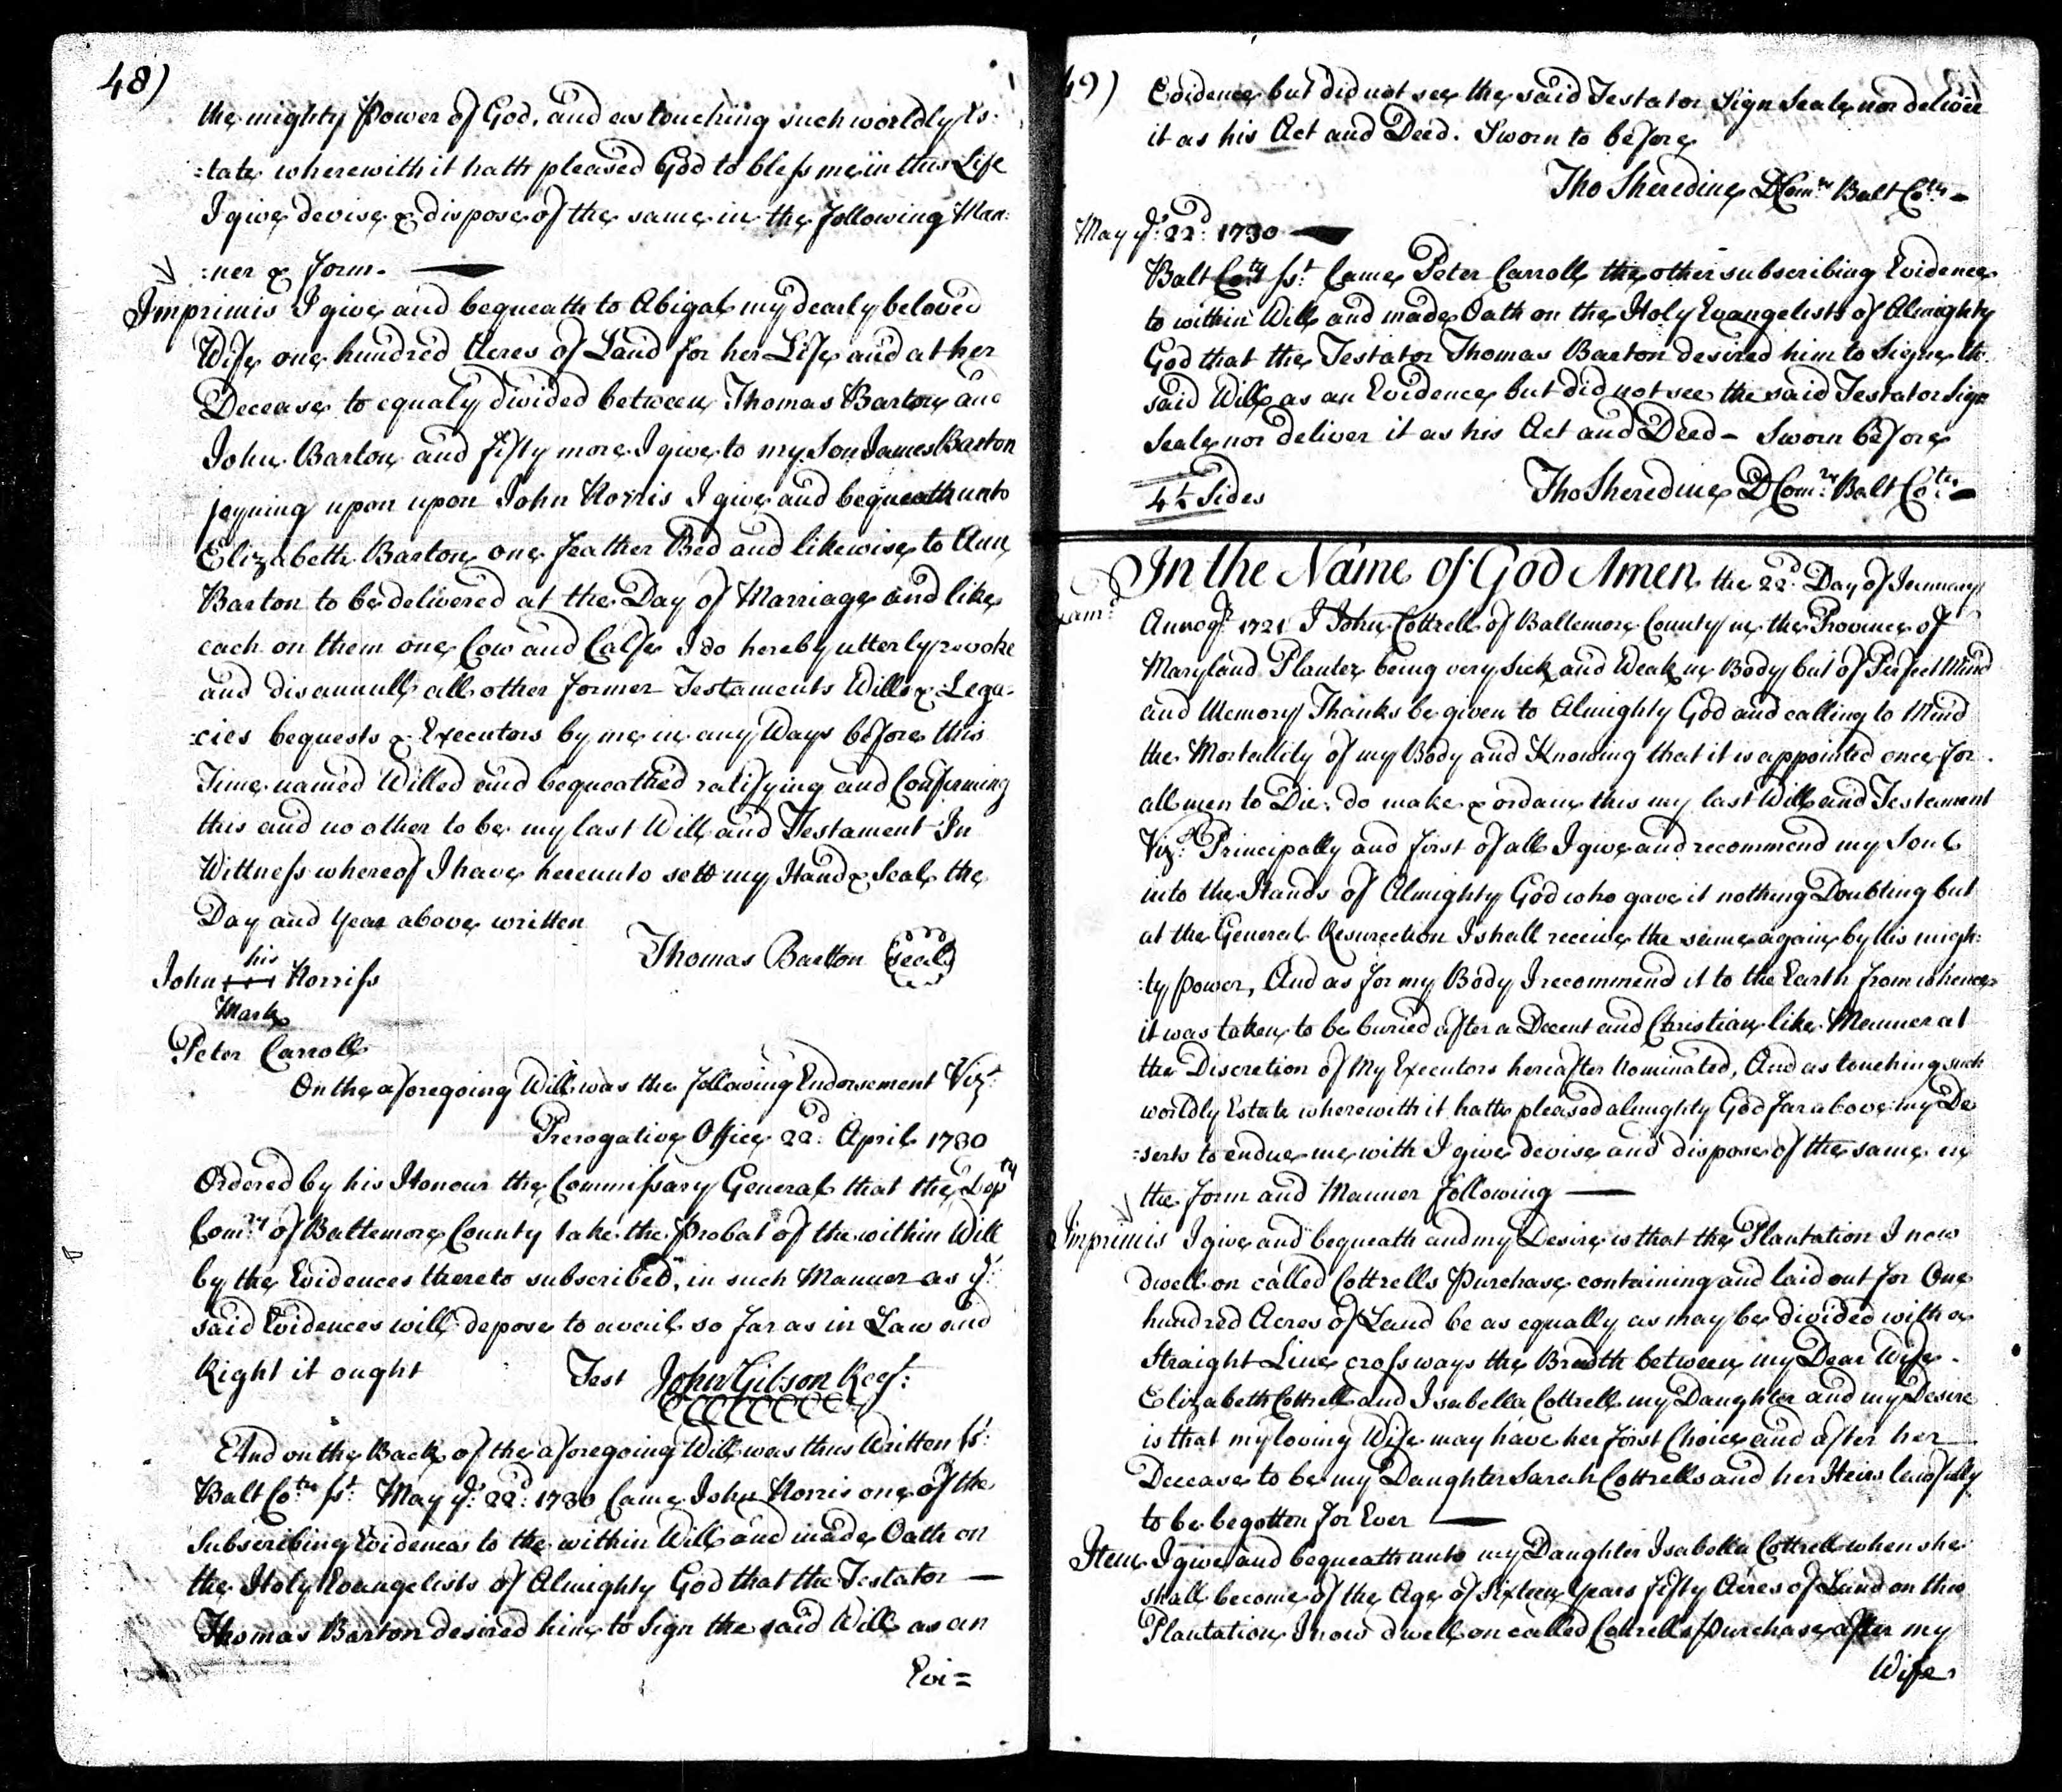 48)
the mighty Power of God, and as touching such worldly Es:
:tate wherewith it hath pleased God to bless me in this Life
I give devise & dispose of the same in the following Man:
:ner & form.
Imprimis I give and bequeath to Abigal my dearly beloved
Wife one hundred Acres of Land for her Life and at her
Decease to equaly divided between Thomas Barton and
John Barton and fifty more I give to my Son James Barton
joyning upon upon John Norris I give and bequeath unto
Elizabeth Barton one feather Bed and likewise to Ann
Barton to be delivered at the Day of Marriage and like
each on them one Cow and Calfe I do hereby utterly revoke
and disannull all other former Testaments Wills & Lega:
:cies bequests & Executors by me in any Ways before this
Time named Willed and bequeathed ratifying and Confirming
this and no other to be my last Will and Testament In
Wittness whereof I have hereunto sett my Hand & Seal the
Day and Year above written
Thomas Barton Seal
his
John Norriss
Mark
Peter Carroll
On the aforegoing Will was the following Endorsement Vizt:
Prerogative Office 22d: April 1730
Ordered by his Honour the Commissary General that the Depty
Comry of Baltemore County take the Probat of the within Will
by the Evidences thereto subscribed, in such Manner as ye:
said Evidences will depose to avail so far as in Law and
Right it ought Test John Gibson Regt:
And on the Back of the aforegoing Will was thus Written ss:
Balt Coty sst: May ye: 22d: 1730 Came John Norris one of the
Subscribing Evidences to the within Will and made Oath on
the Holy Evangelists of Almighty God that the Testator
Thomas Barton desired him to Sign the said Will as an
Evi=
49)
Evidence but did not see the said Testator Sign Seale nor deliver
it as his Act and Deed. Sworn to before
Tho Sheredine DComry Balt Coty
May ye: 22d: 1730
Balt Coty sst: Came Peter Carroll the other subscribing Evidence
to within Will and made Oath on the Holy Evangelists of Almighty
God that the Testator Thomas Barton desired him to Signe the
said Will as an Evidence but did not see the said Testator Sign
Seale nor deliver it as his Act and Deed - Sworn before
4½ Sides Tho Sheredine DComry: Balt Coty
In the Name of God Amen the 22d: Day of January
Exam:d
Annoq 1721 I John Cottrell of Baltemore County in the Province of
Maryland Planter being very Sick and Weak in Body but of Perfect Mind
and Memory Thanks be given to Almighty God and calling to Mind
the Mortallity of my Body and Knowing that it is appointed once for
all men to Die: do make & ordain this my last Will and Testament
Vizt: Principally and first of all I give and recommend my Soul
into the Hands of Almighty God who gave it nothing Doubting but
at the General Resurection I shall receive the same again by His migh:
:ty power, And as for my Body I recommend it to the Earth from whence
it was taken to be buried after a Decent and Christian like Manner at
the Discretion of My Executors hereafter Nominated, And as touching such
worldly Estate wherewith it hath pleased almighty God far above my De
:serts to endue me with I give devise and dispose of the same in
the form and Manner following
Imprimis I give and bequeath and my Desire is that the Plantation I now
dwell on called Cottrells Purchase containing and laid out for One
hundred Acres of Land be as equally as may be divided with a
Straight Line cross ways the Bredth between my Dear Wife
Elizabeth Cottrell and Isabella Cottrell my Daughter and my Desire
is that my loving Wife may have her first Choice and after her
Decease to be my Daughter Sarah Cottrells and her Heirs lawfully
to be begotten for Ever
Item I give and bequeath unto my Daughter Isabella Cottrell when she
shall become of the Age of Sixteen Years fifty Acres of Land on this
Plantation I now dwell on called Cottrells Purchase after my
Wife